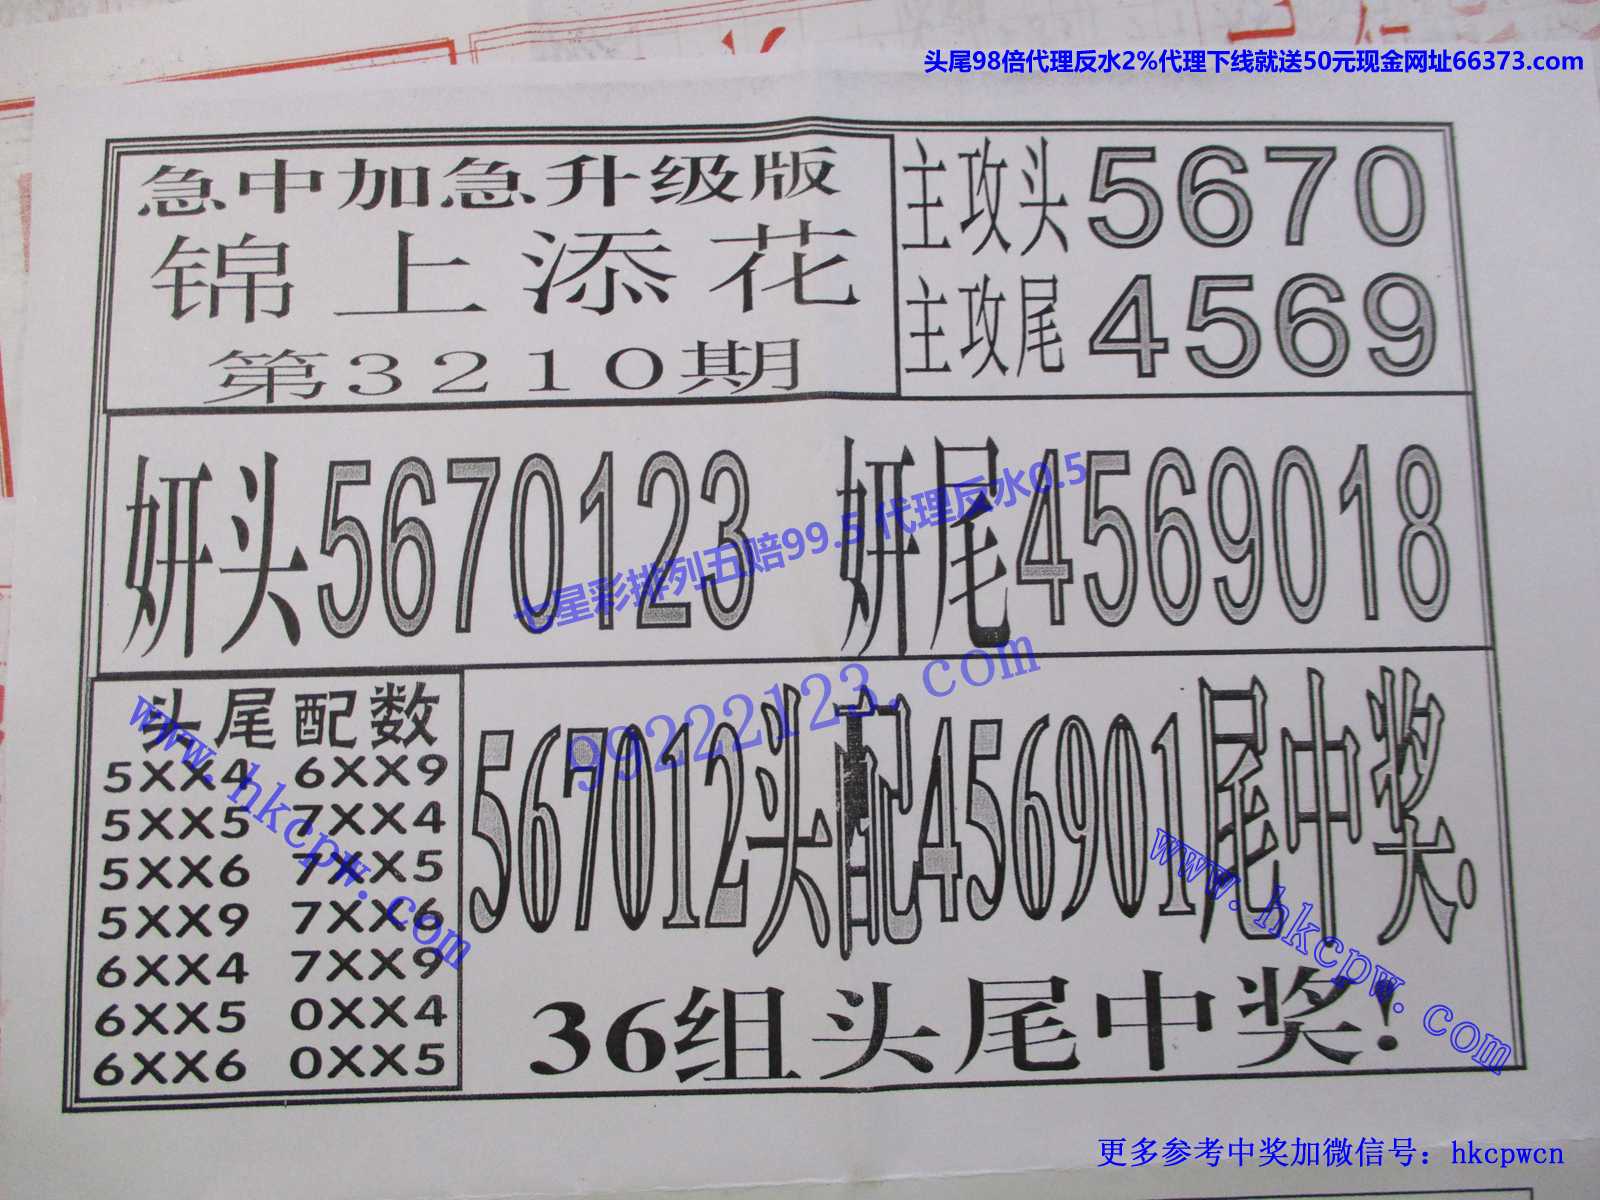 头尾98倍代理反水2%代理下线就送50元现金网址66373.com
急中加急升级版
锦上添花
第3210期
主攻头5670
主攻尾4569
妍头5670123
妍尾4569018
七星彩排列五赔99.5 代理反水0.5
99222123.com
头尾配数
5XX4 6XX9
5XX5 7XX4
5XX6 7XX5
5XX9 7XX6
6XX4 7XX9
6XX5 0XX4
6XX6 0XX5
www.hkcpw.com
567012头配456901尾中奖.
36组头尾中奖!
www.hkcpw.com
更多参考中奖加微信号：hkcpwcn